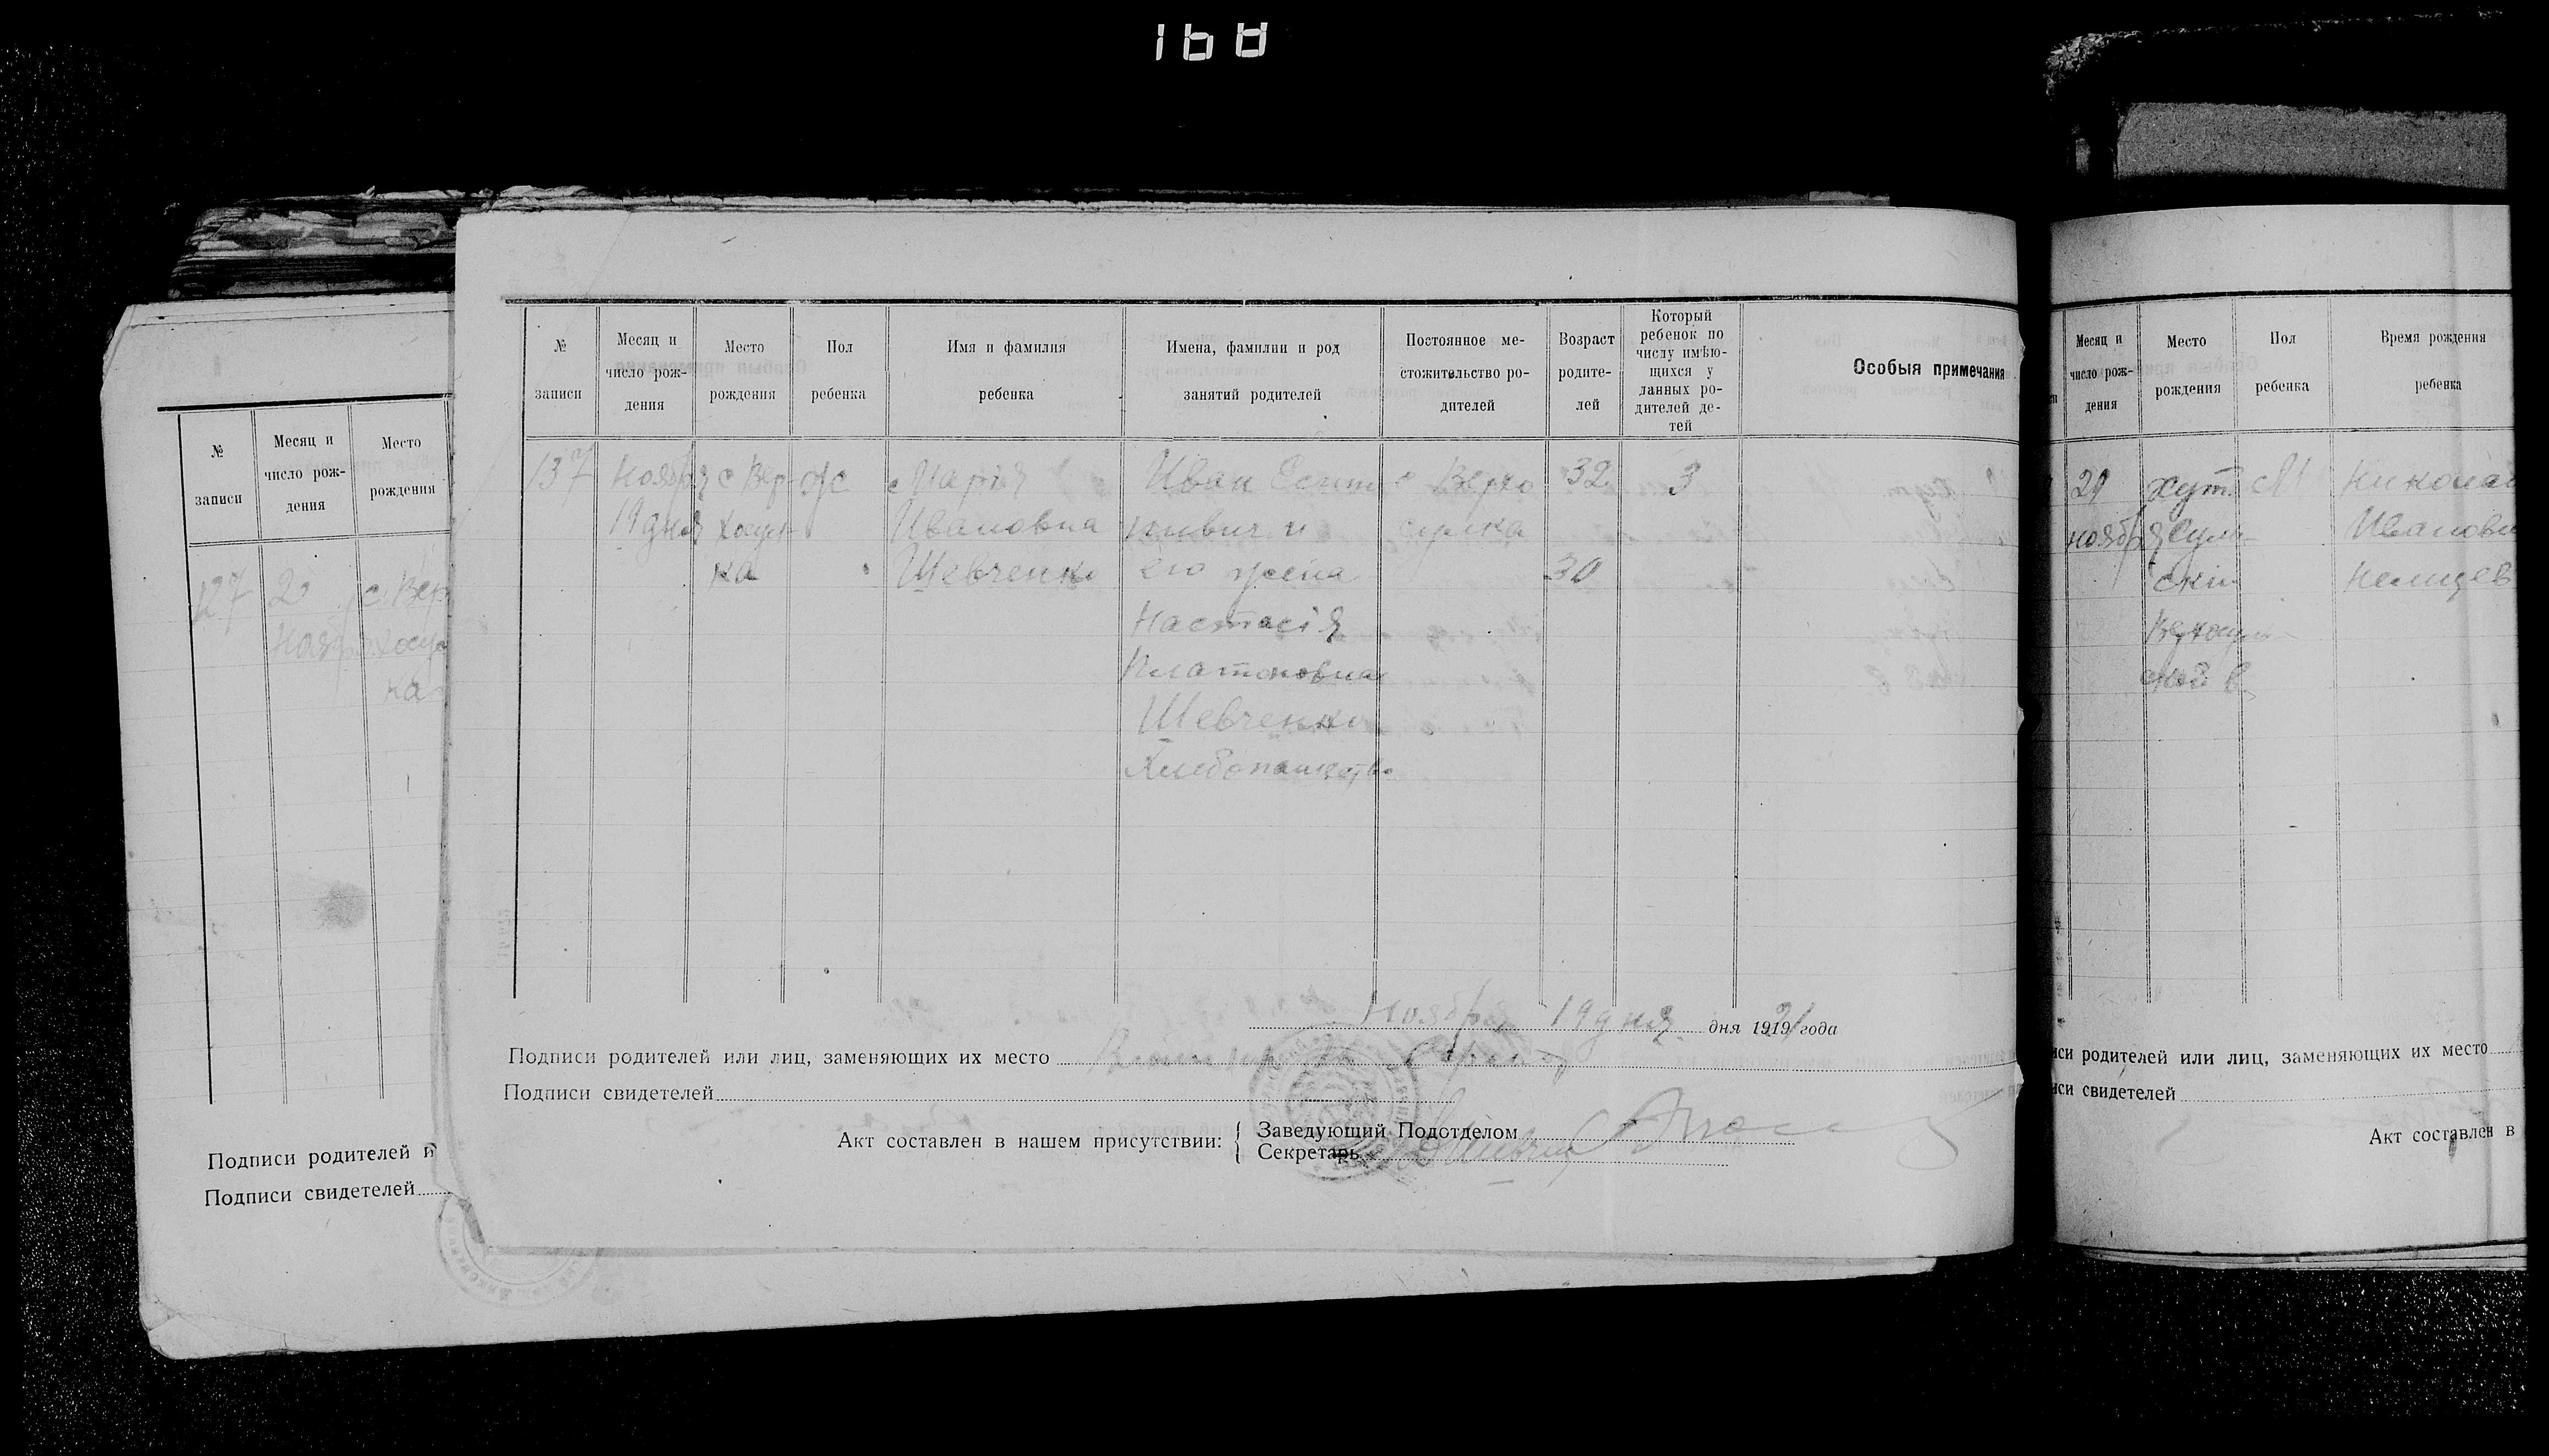 168
№ записи
Месяц и число рож- дения
Место рождения
127
2
Нояб
с. Вер
хосул
ка
Подписи родителей и
Подписи свидетелей
№ записи
Месяц и число рож- дения
Место рождения
Пол ребенка
Имя и фамилия ребенка
Имена, фамилии и род занятий родителей
Постоянное ме- стожительство ро- дителей
Возраст родите- лей
Который ребенок по числу имѣю- щихся у данных ро- дителей де- тей
Особыя примечания
137
Ноября
19 дня
с Вер-
хосул-
ка
ж
Марія
Ивановна
Шевченко
Иван
и
его жена
Настасія
Платоновна
Шевченко
Хлебопашество
с Верхо
сулка
32
30
3
Ноября 19 дня дня 1921 года
Подписи родителей или лиц, заменяющих их место
Подписи свидетелей
Акт составлен в нашем присутствии:
Заведующий Подотделом
Секретарь
Месяц и число рож- дения
Место рождения
Пол ребенка
Время рождения ребенка
29
ноября
хут.
Сул-
ской в.
М
Николай
Иванови
Немцев
иси родителей или лиц, заменяющих их место
иси свидетелей
Акт составлен в